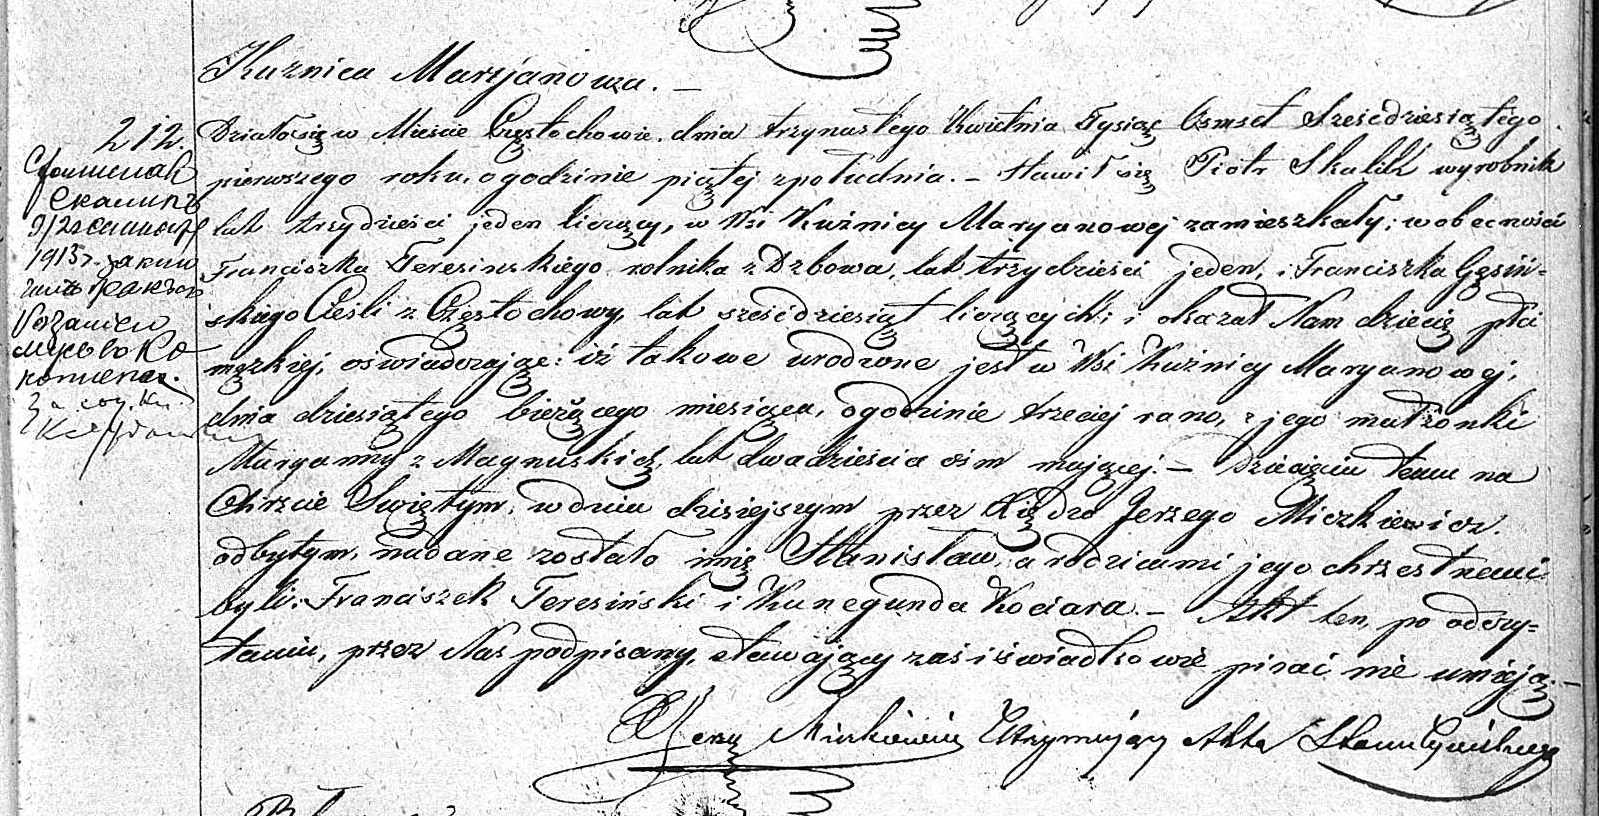 Kuznica Maryanowa. —
212.
Działo się w Mieście Częstochowie. dnia trzynastego Kwietnia Tysiąc Ośmset Sześćdziesiątego
pierwszego roku, o godzinie piątej z południa. — Stawił się Piotr Skalik wyrobnik
lat trzydzieści jeden liczący, w Wsi Kuźnicy Maryanowej zamieszkały; w obecności
Franciszka Teresinskiego rolnika z Dzbowa, lat trzydzieści jeden, i Franciszka Gęsiń-
skiego Cieśli z Częstochowy, lat sześćdziesiąt liczących; i okazał Nam dziecię płci
męzkiej, oświadczając: iż takowe urodzone jest w Wsi Kuźnicy Maryanowej,
dnia dziesiątego bieżącego miesiąca, o godzinie trzeciej rano, z jego małżonki
Maryanny z Magnuskich, lat dwadzieścia ośm mającej. — Dziecięciu temu na
Chrzcie Swiętym, w dniu dzisiejszym przez Xiędza Jerzego Miczkiewicz.
odbytym, nadane zostało imię Stanisław, a rodzicami jego chrzestnemi
byli: Franciszek Teresiński i Kunegunda Kociara. — Akt ten, po odczy-
taniu, przez Nas podpisany, stawający zaś i świadkowie pisać nie umieją. —
Utrzymujący Akta Stanu Cywilnego
Скаликъ
1913 г.